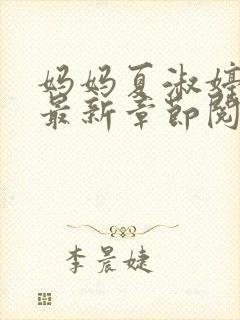 妈妈夏淑婷
最新章节阅
李晨婕